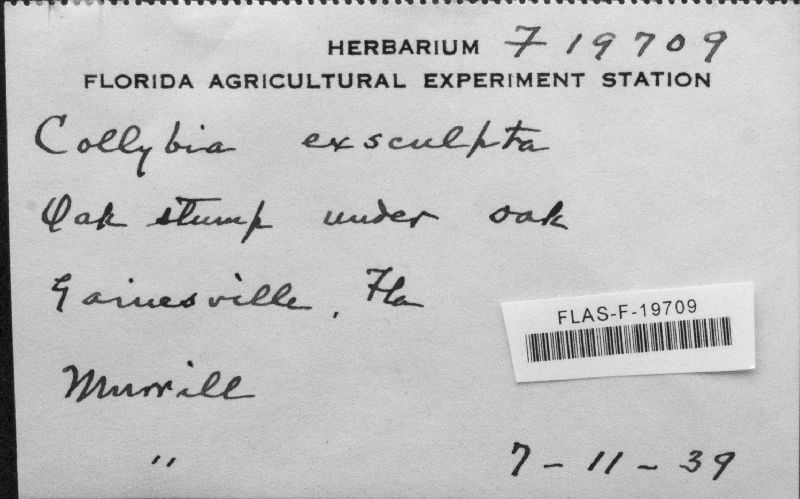 HERBARIUM F 19709
FLORIDA AGRICULTURAL EXPERIMENT STATION
Collybia exsculpta
Oak stump under oak
Gainesville, Fla
FLAS-F-19709
Murrill
" 7-11-39